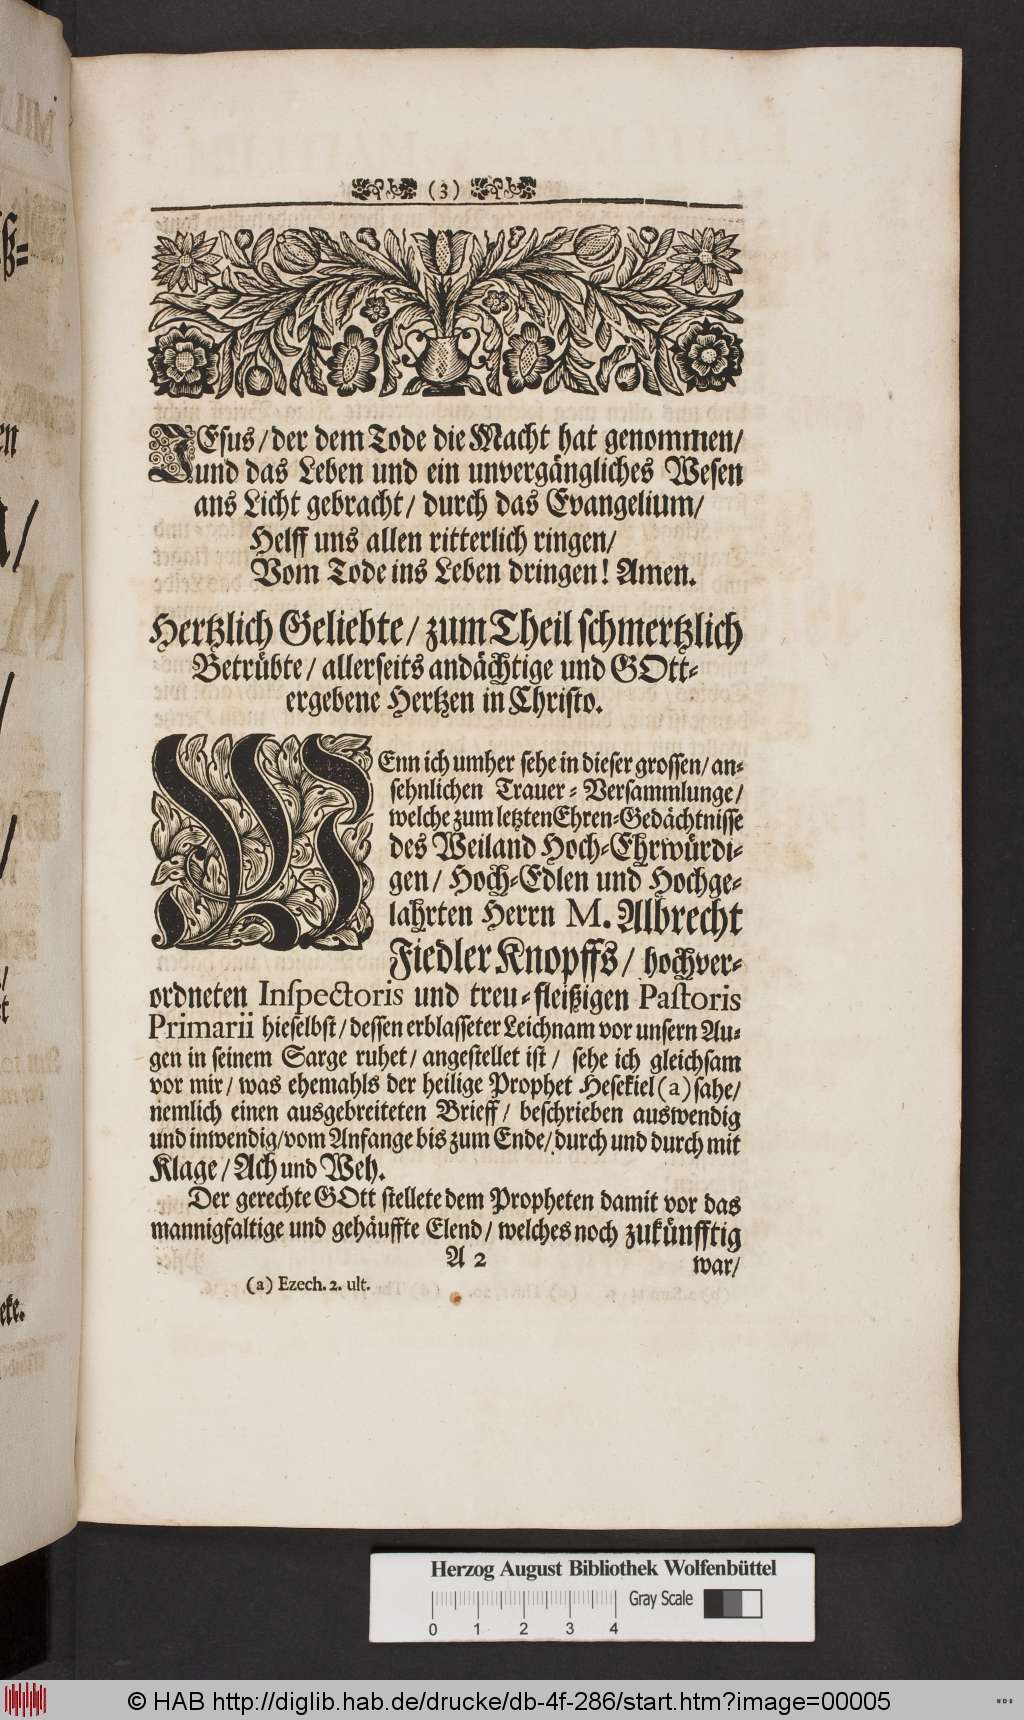 (3)
JEsus / der dem Tode die Macht hat genommen /
und das Leben und ein unvergängliches Wesen
ans Licht gebracht / durch das Evangelium /
Helff uns allen ritterlich ringen /
Vom Tode ins Leben dringen! Amen.
Hertzlich Geliebte / zum Theil schmertzlich
Betrübte / allerseits andächtige und GOtt-
ergebene Hertzen in Christo.
WEnn ich umher sehe in dieser grossen / an-
sehnlichen Trauer-Versammlunge /
welche zum letzten Ehren-Gedächtnisse
des Weiland Hoch-Ehrwürdi-
gen / Hoch-Edlen und Hochge-
lahrten Herrn M. Albrecht
Fiedler Knopffs / hochver-
ordneten Inspectoris und treu-fleißigen Pastoris
Primarii hieselbst / dessen erblasseter Leichnam vor unsern Au-
gen in seinem Sarge ruhet / angestellet ist / sehe ich gleichsam
vor mir / was ehemahls der heilige Prophet Hesekiel (a) sahe /
nemlich einen ausgebreiteten Brieff / beschrieben auswendig
und inwendig / vom Anfange bis zum Ende / durch und durch mit
Klage / Ach und Weh.
Der gerechte GOtt stellete dem Propheten damit vor das
mannigfaltige und gehäuffte Elend / welches noch zukünfftig
A 2
war /
(a) Ezech. 2. ult.
Herzog August Bibliothek Wolfenbüttel
Gray Scale
0 1 2 3 4
© HAB http://diglib.hab.de/drucke/db-4f-286/start.htm?image=00005